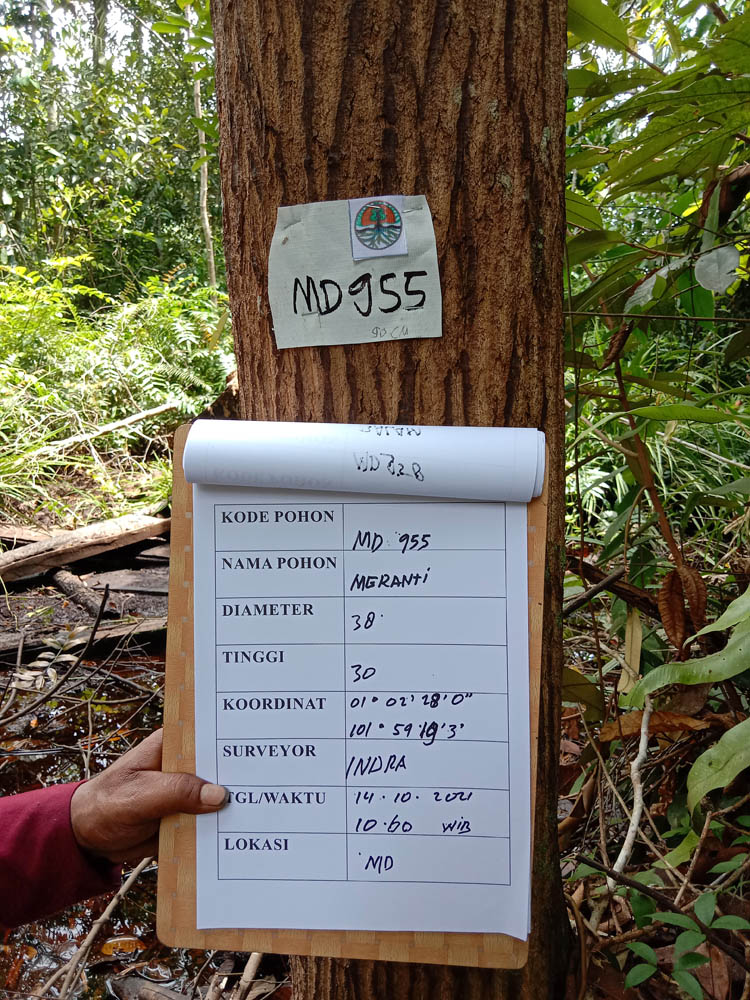 MD 955
90 CM
KODE POHON
MD 955
NAMA POHON
MERANTI
DIAMETER
38
TINGGI
30
KOORDINAT
01° 02' 28' 0"
101° 59' 19' 3'
SURVEYOR
INDRA
TGL/WAKTU
14.10.2021
10.60 WIB
LOKASI
MD